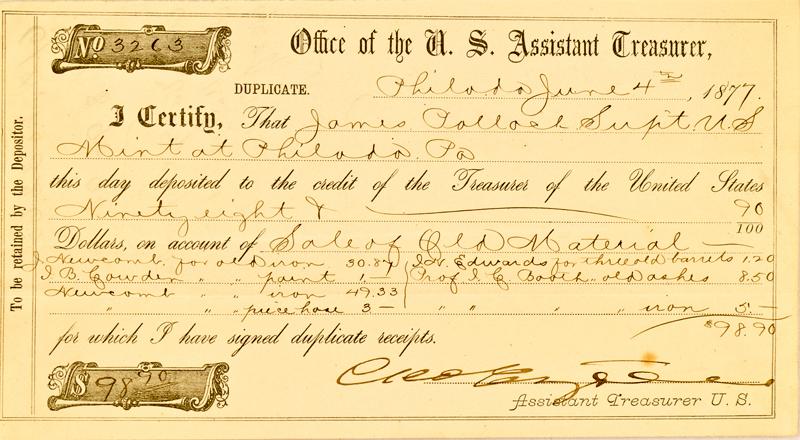 No 3263
Office of the U. S. Assistant Treasurer,
DUPLICATE.
Philada June 4th, 1877.
I Certify, That James Pollock Supt. U S
Mint at Philada. Pa
this day deposited to the credit of the Treasurer of the United States
Ninety eight & 90/100
Dollars, on account of Sale of Old Material
J. Newcomb for old iron 30.87 J. H. Edwards for three old barrels 1.20
J. B. Cowden " " paint 1.— Prof J. C Booth " old ashes 8.50
Newcomb " " iron 49.33
" " " piece hose 3— " " " " iron 5.—
$98.90
for which I have signed duplicate receipts.
$ 98 90
Assistant Treasurer U. S.
To be retained by the Depositor.